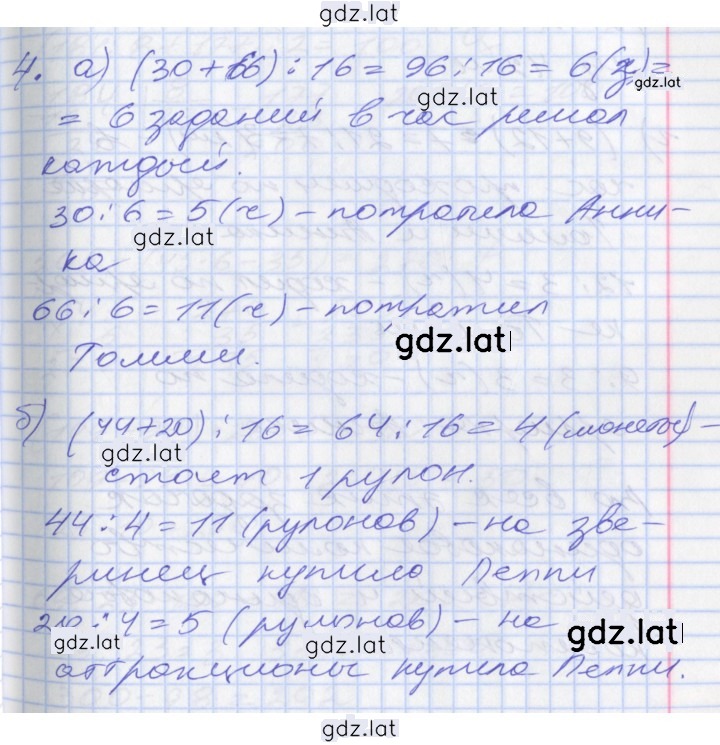 gdz.lat
4. а) (30+66):16=96:16=6(з)=
gdz.lat
gdz.lat
= 6 заданий в час решал
каждый.
30:6=5(ч) - потратила Анни-
gdz.lat
ка
66:6=11(ч) - потратил
gdz.lat
Томми.
б) (44+20):16=64:16=4 (монеты) -
gdz.lat
стоит 1 рулон.
44:4=11 (рулонов) - на зве-
ринец купило Пеппи
20:4=5 (рулонов) - на
gdz.lat
gdz.lat
gdz.lat
аттракционы купила Пеппи.
gdz.lat